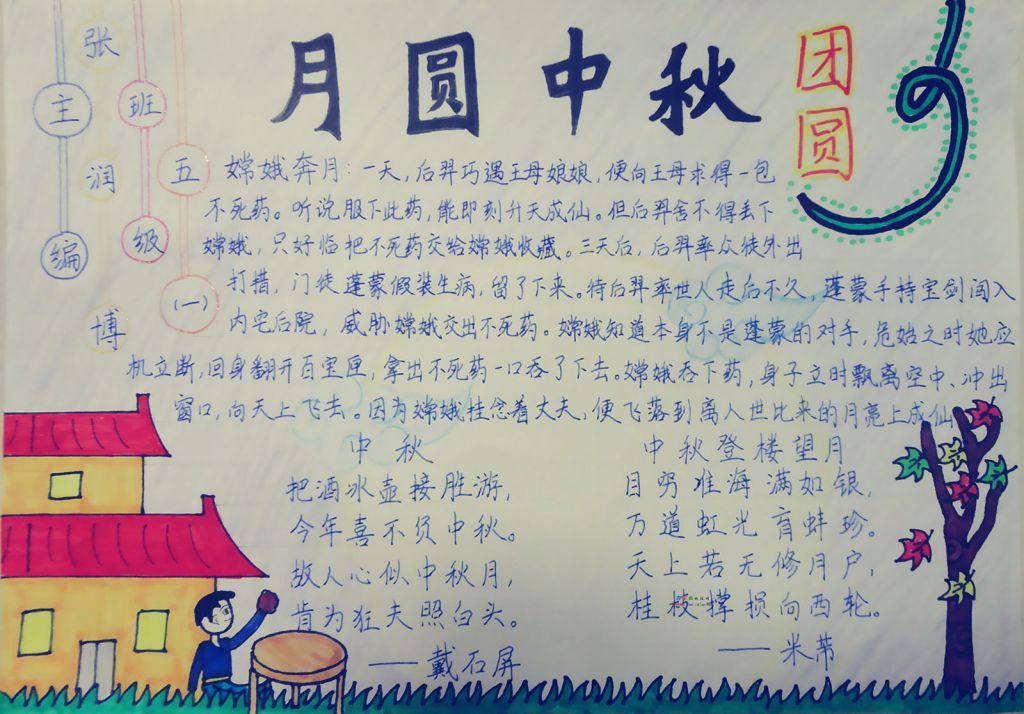 月圆中秋
团圆
张润博
主编
班级
五(一)
嫦娥奔月：一天，后羿巧遇王母娘娘，便向王母求得一包
不死药。听说服下此药，能即刻升天成仙。但后羿舍不得丢下
嫦娥，只好临把不死药交给嫦娥收藏。三天后，后羿率众徒外出
打措，门徒蓬蒙假装生病，留了下来。待后羿率世人走后不久，蓬蒙手持宝剑闯入
内宅后院，威胁嫦娥交出不死药。嫦娥知道本身不是蓬蒙的对手，危始之时她应
机立断，回身翻开百宝匣，拿出不死药一口吞了下去。嫦娥吞下药，身子立时飘离空中、冲出
窗口，向天上飞去。因为嫦娥挂念着丈夫，便飞落到离人世比来的月亮上成仙
中秋
把酒冰壶接胜游，
今年喜不负中秋。
故人心似中秋月，
肯为狂夫照白头。
——戴石屏
中秋登楼望月
目穷淮海满如银，
万道虹光育蚌珍。
天上若无修月户，
桂枝撑损向西轮。
——米芾